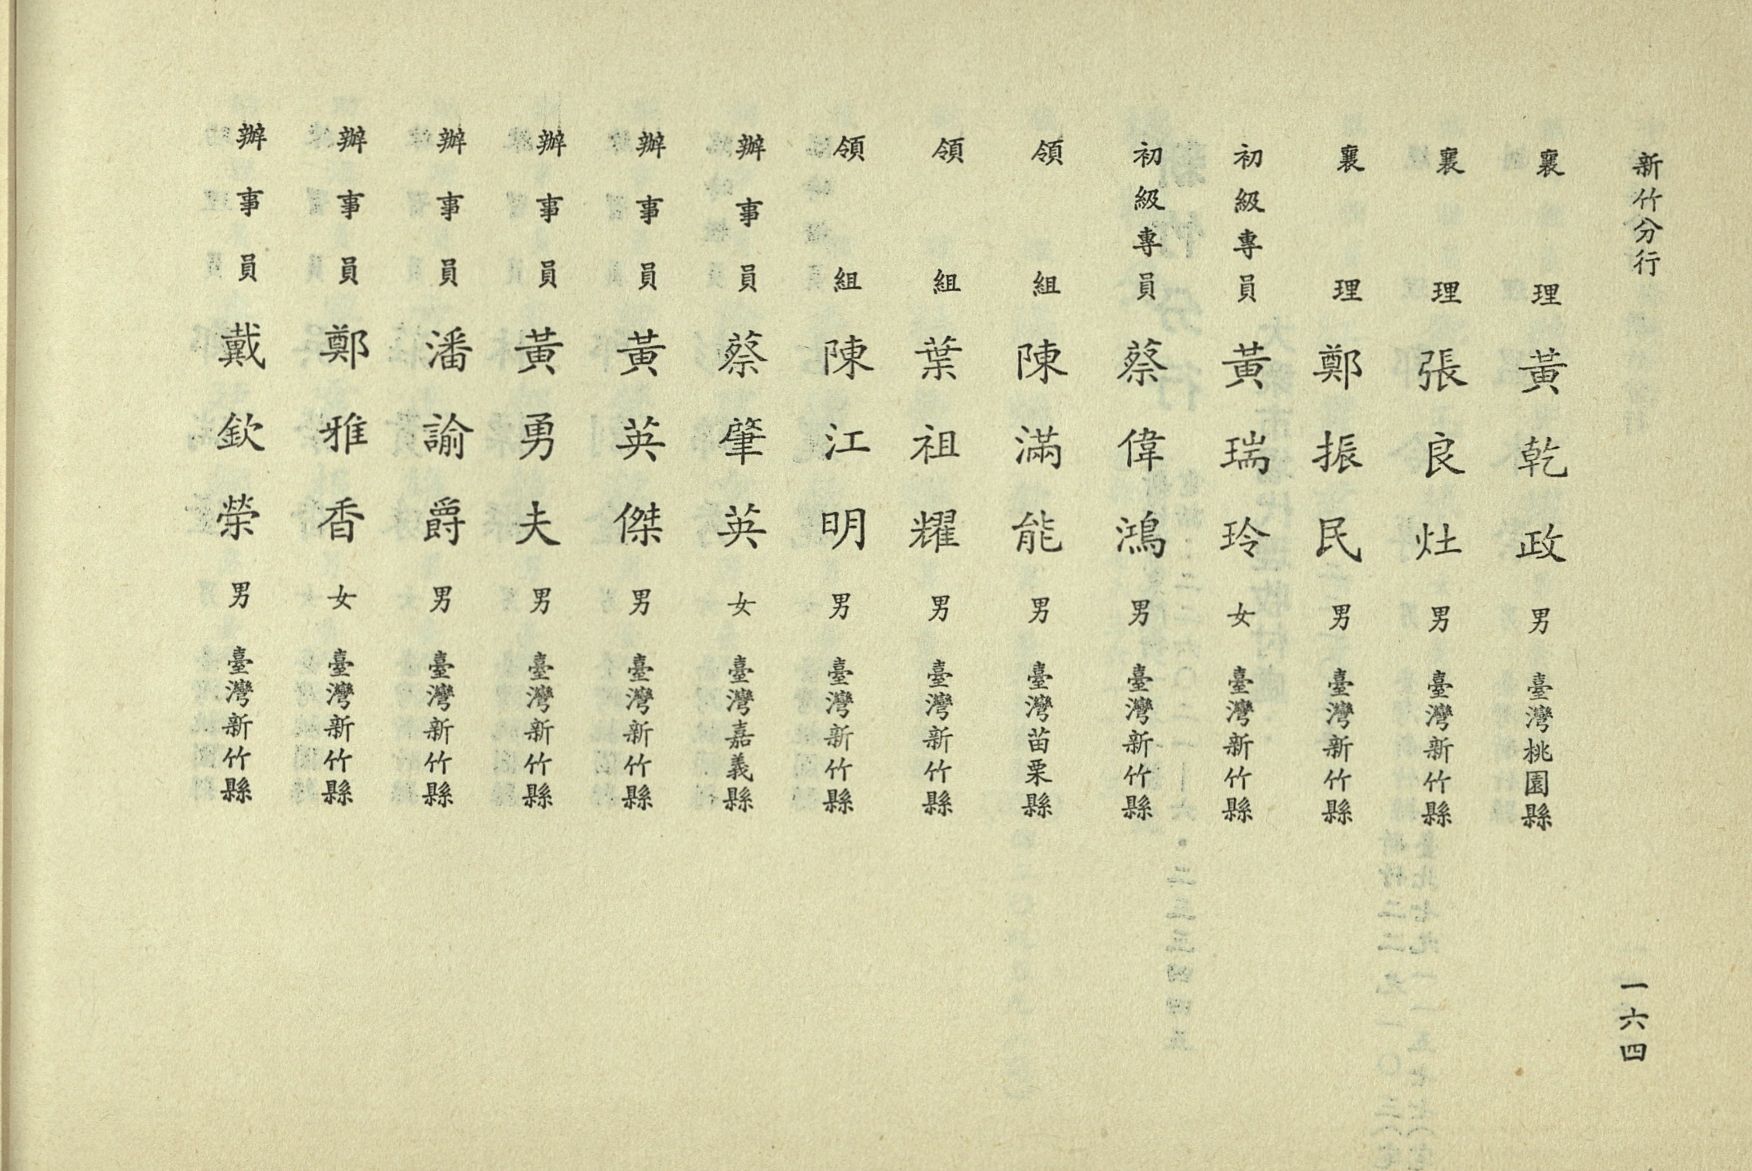 新竹分行
襄理 黃乾政 男 臺灣桃園縣
襄理 張良灶 男 臺灣新竹縣
襄理 鄭振民 男 臺灣新竹縣
初級專員 黃瑞玲 女 臺灣新竹縣
初級專員 蔡偉鴻 男 臺灣新竹縣
領組 陳滿能 男 臺灣苗栗縣
領組 葉祖耀 男 臺灣新竹縣
領組 陳江明 男 臺灣新竹縣
辦事員 蔡肇英 女 臺灣嘉義縣
辦事員 黃英傑 男 臺灣新竹縣
辦事員 黃勇夫 男 臺灣新竹縣
辦事員 潘諭爵 男 臺灣新竹縣
辦事員 鄭雅香 女 臺灣新竹縣
辦事員 戴欽榮 男 臺灣新竹縣
一六四